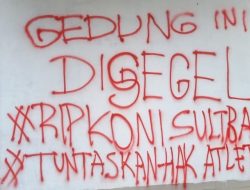 GEDUNG INI
DISEGEL
#RIPKONISULBA
#TUNTASKAN HAK ATLET